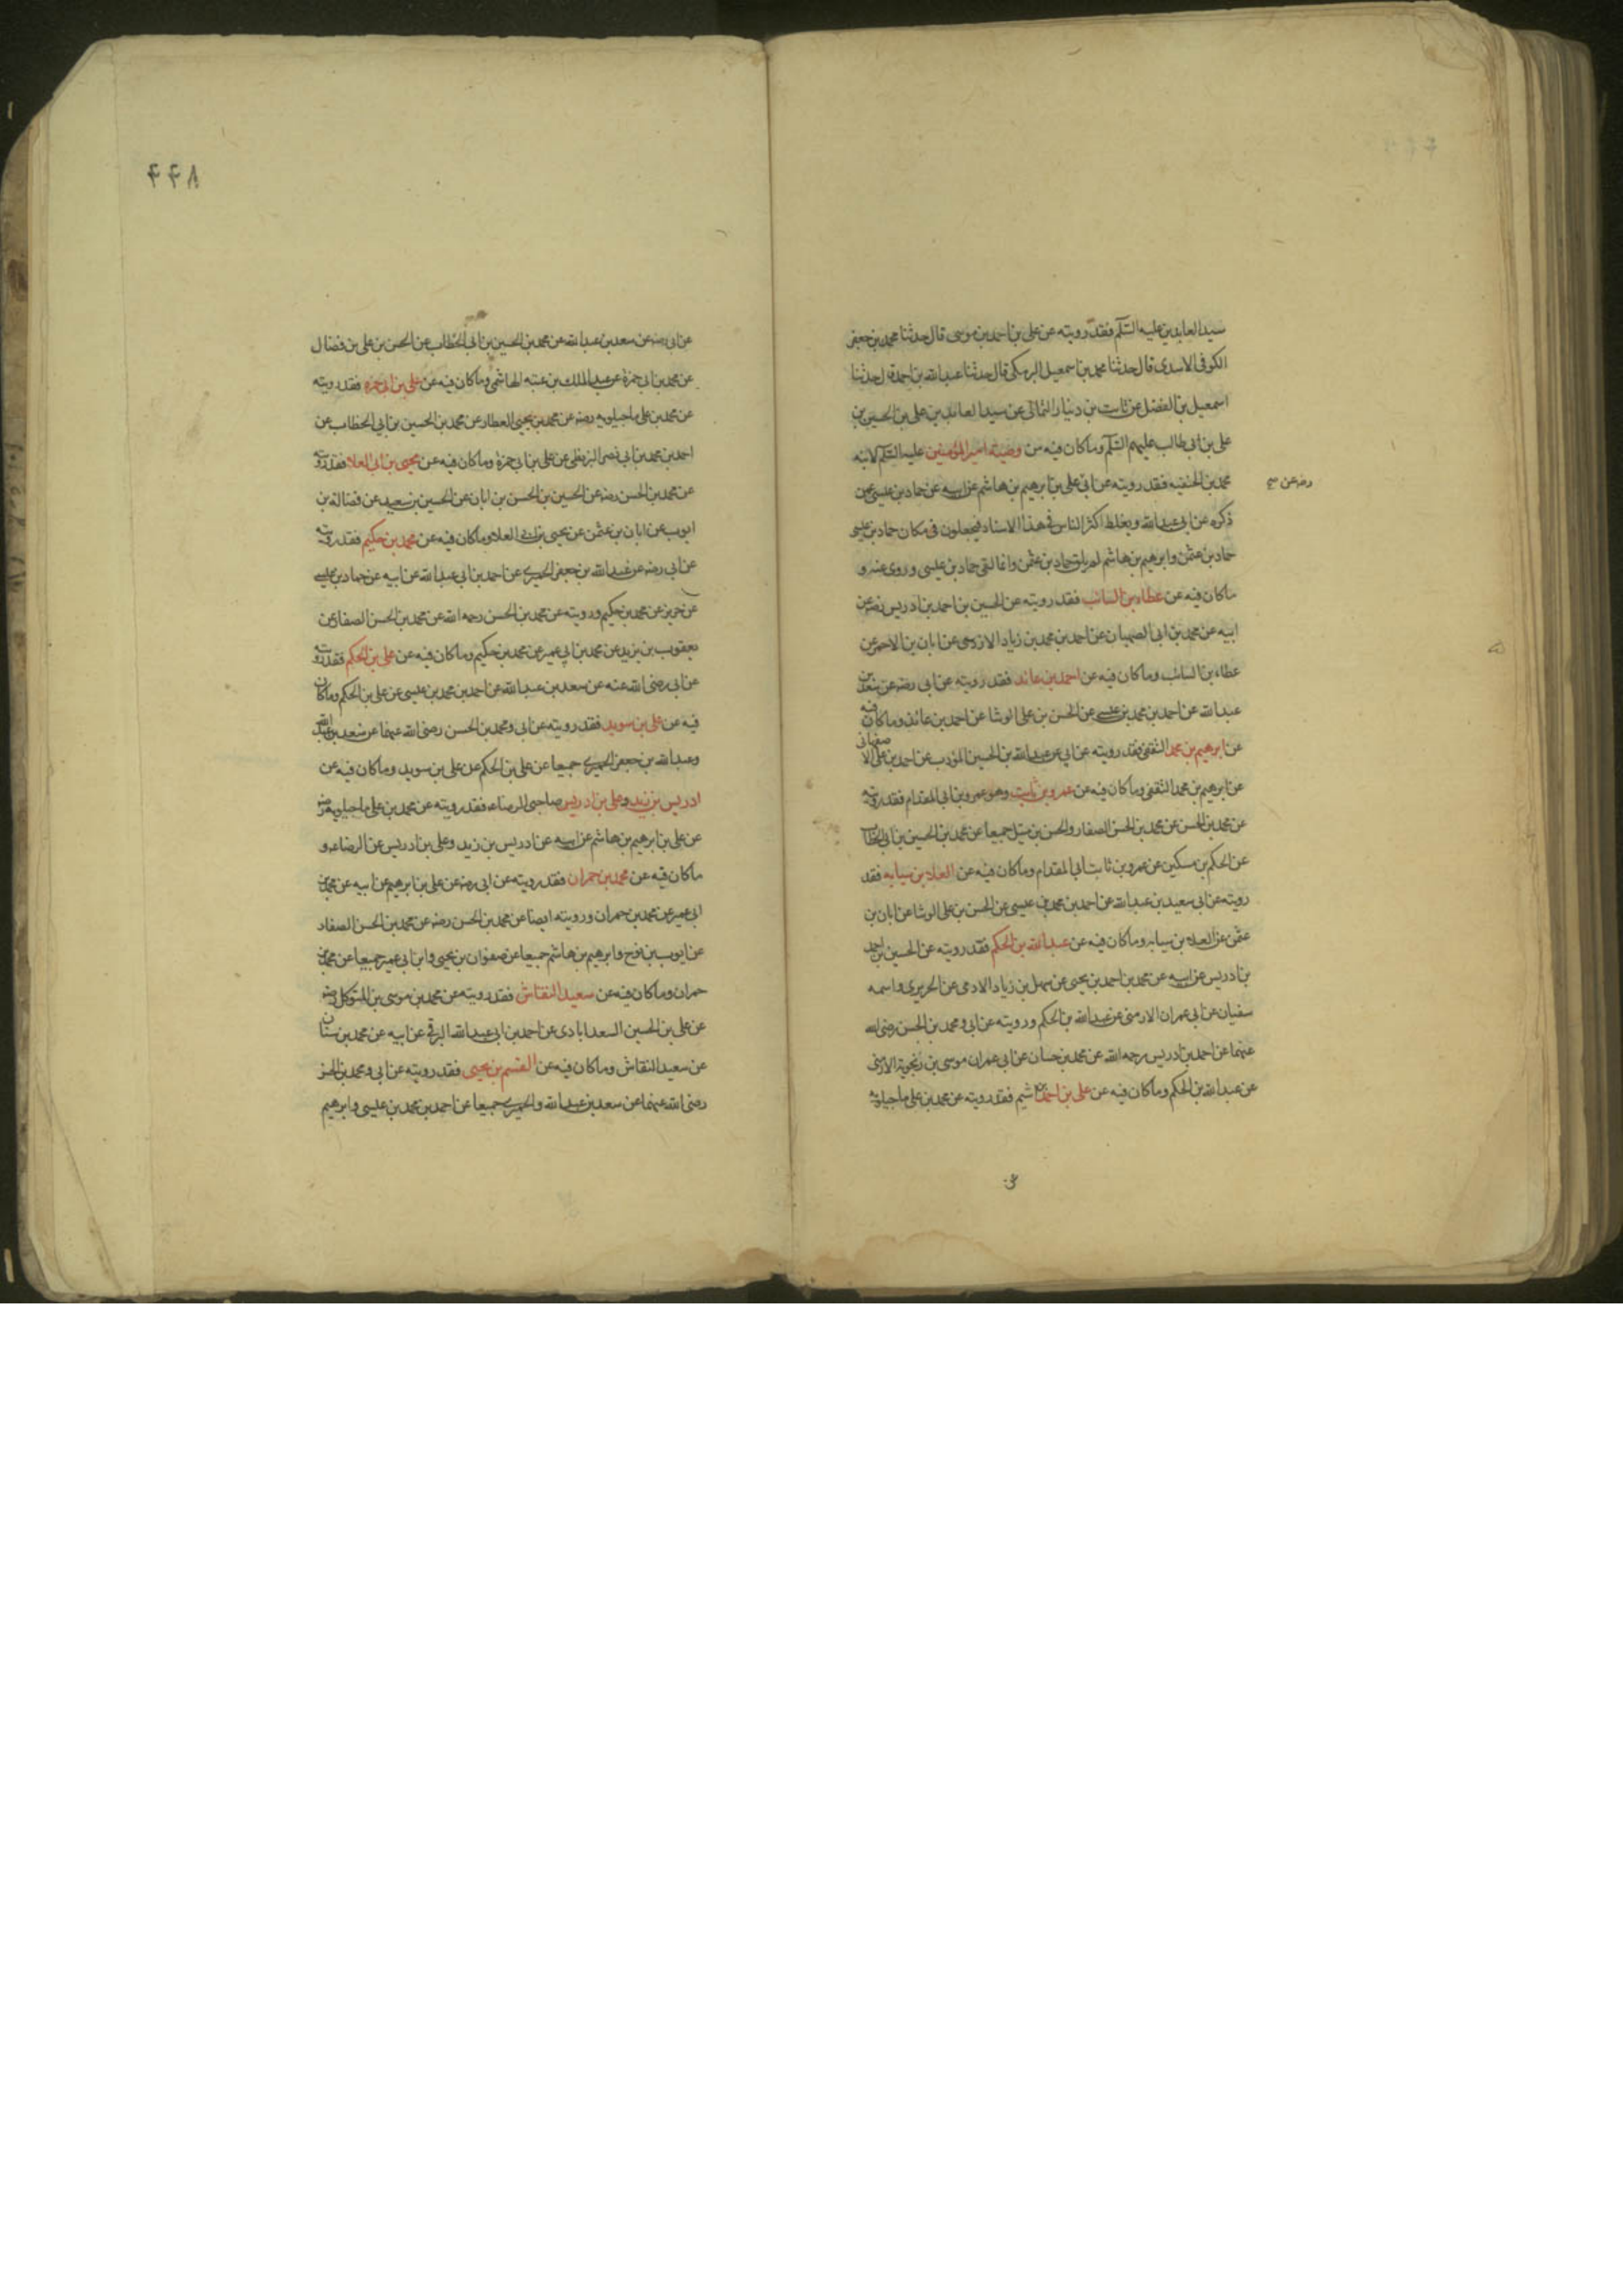 سيد العابدين عليه السلم فقد رويته عن علي بن احمد بن موسى قال حدثنا محمد بن جعفر
الكوفى الاسدى قال حدثنا محمد بن اسمعيل البرمكى قال حدثنا عبد الله بن احمد قال حدثنا
اسمعيل بن الفضل عن ثابت بن دينار الثمالى عن سيد العابدين على بن الحسين بن
على بن ابى طالب عليهم السلم وما كان فيه من وصية امير المؤمنين عليه السلم لابنه
محمد بن الحنفيه فقد رويته عن ابى على بن ابرهيم بن هاشم عن ابيه عن حماد بن عيسى عمن
رضه عن
ذكره عن ابى عبد الله ويغلط اكثر الناس فى هذا الاسناد فيجعلون فى مكان حماد بن عيسى
حماد بن عثمن وابرهيم بن هاشم لم يلق حماد بن عثمن وانما لقى حماد بن عيسى وروى عنه و
ماكان فيه عن عطاء بن السائب فقد رويته عن الحسين بن احمد بن ادريس رضه عن
ابيه عن محمد بن ابى الصهبان عن احمد بن محمد بن زياد الازدى عن ابان بن الاحمر عن
عطاء بن السائب وماكان فيه عن احمد بن عائد فقد رويته عن ابى رضه عن سعد بن
عبد الله عن احمد بن محمد بن عيسى عن الحسن بن على الوشا عن احمد بن عائذ وماكان فيه
عن ابرهيم بن محمد الثقفى فقد رويته عن ابى عن عبد الله بن الحسين المؤدب عن احمد بن على الاصفهانى
عن ابرهيم بن محمد الثقفى وماكان فيه عن عمرو بن ثابت وهو عمرو بن ابى المقدام فقد رويته
عن محمد بن الحسن عن محمد بن الحسن الصفار والحسن بن متيل جميعا عن محمد بن الحسين بن ابى الخطاب
عن الحكم بن مسكين عن عمرو بن ثابت ابى المقدام وماكان فيه عن العلاء بن سيابه فقد
رويته عن ابى سعيد بن عبد الله عن احمد بن محمد بن عيسى عن الحسن بن على الوشا عن ابان بن
عثمن عن العلاء بن سيابه وماكان فيه عن عبد الله بن الحكم فقد رويته عن الحسين بن احمد
بن ادريس عن ابيه عن محمد بن احمد بن يحيى عن سهل بن زياد الادمى عن الحريرى واسمه
سفيان عن ابى عمران الارمنى عن عبد الله بن الحكم ورويته عن ابى ومحمد بن الحسن رضى الله
عنهما عن احمد بن ادريس رحمه الله عن محمد بن حسان عن ابى عمران موسى بن رنجويه الارمنى
عن عبد الله بن الحكم وماكان فيه عن على بن احمد بن اشيم فقد رويته عن محمد بن على ماجيلويه
عن
٤٤٨
عن ابى رضه عن سعد بن عبد الله عن محمد بن الحسين بن ابى الخطاب عن الحسن بن على بن فضال
عن محمد بن ابى حمزة عن عبد الملك بن عتبه الهاشمى وماكان فيه عن على بن ابى حمزه فقد رويته
عن محمد بن على ماجيلويه رضه عن محمد بن يحيى العطار عن محمد بن الحسين بن ابى الخطاب عن
احمد بن محمد بن ابى نصر البزنطى عن على بن ابى حمزة وماكان فيه عن يحيى بن ابى العلا فقد رويته
عن محمد بن الحسن رضه عن الحسين بن الحسن بن ابان عن الحسين بن سعيد عن فضالة بن
ايوب عن ابان بن عثمن عن يحيى بن ابى العلاء وماكان فيه عن محمد بن حكيم فقد رويته
عن ابى رضه عن عبد الله بن جعفر الحميرى عن احمد بن ابى عبد الله عن ابيه عن حماد بن عيسى
عن حريز عن محمد بن حكيم ورويته عن محمد بن الحسن رحمه الله عن محمد بن الحسن الصفار عن
يعقوب بن يزيد عن محمد بن ابى عمير عن محمد بن حكيم وماكان فيه عن على بن الحكم فقد رويته
عن ابى رضى الله عنه عن سعد بن عبد الله عن احمد بن محمد بن عيسى عن على بن الحكم وماكان
فيه عن على بن سويد فقد رويته عن ابى ومحمد بن الحسن رضى الله عنهما عن سعد بن عبد الله
وعبد الله بن جعفر الحميرى جميعا عن على بن الحكم عن على بن سويد وماكان فيه عن
ادريس بن زيد وعلى بن ادريس صاحبى الرضاء فقد رويته عن محمد بن على ماجيلويه رضه
عن على بن ابرهيم بن هاشم عن ابيه عن ادريس بن زيد وعلى بن ادريس عن الرضاء و
ماكان فيه عن محمد بن حمران فقد رويته عن ابى رضه عن على بن ابرهيم عن ابيه عن محمد بن
ابى عمير عن محمد بن حمران ورويته ايضا عن محمد بن الحسن رضه عن محمد بن الحسن الصفار
عن ايوب بن نوح وابرهيم بن هاشم جميعا عن صفوان بن يحيى وابن ابى عمير جميعا عن محمد بن
حمران وماكان فيه عن سعيد النقاش فقد رويته عن محمد بن موسى بن المتوكل رضه
عن على بن الحسين السعدابادى عن احمد بن ابى عبد الله البرقى عن ابيه عن محمد بن سنان
عن سعيد النقاش وماكان فيه عن القسم بن يحيى فقد رويته عن ابى ومحمد بن الحسن
رضى الله عنهما عن سعد بن عبد الله والحميرى جميعا عن احمد بن محمد بن عيسى وابرهيم